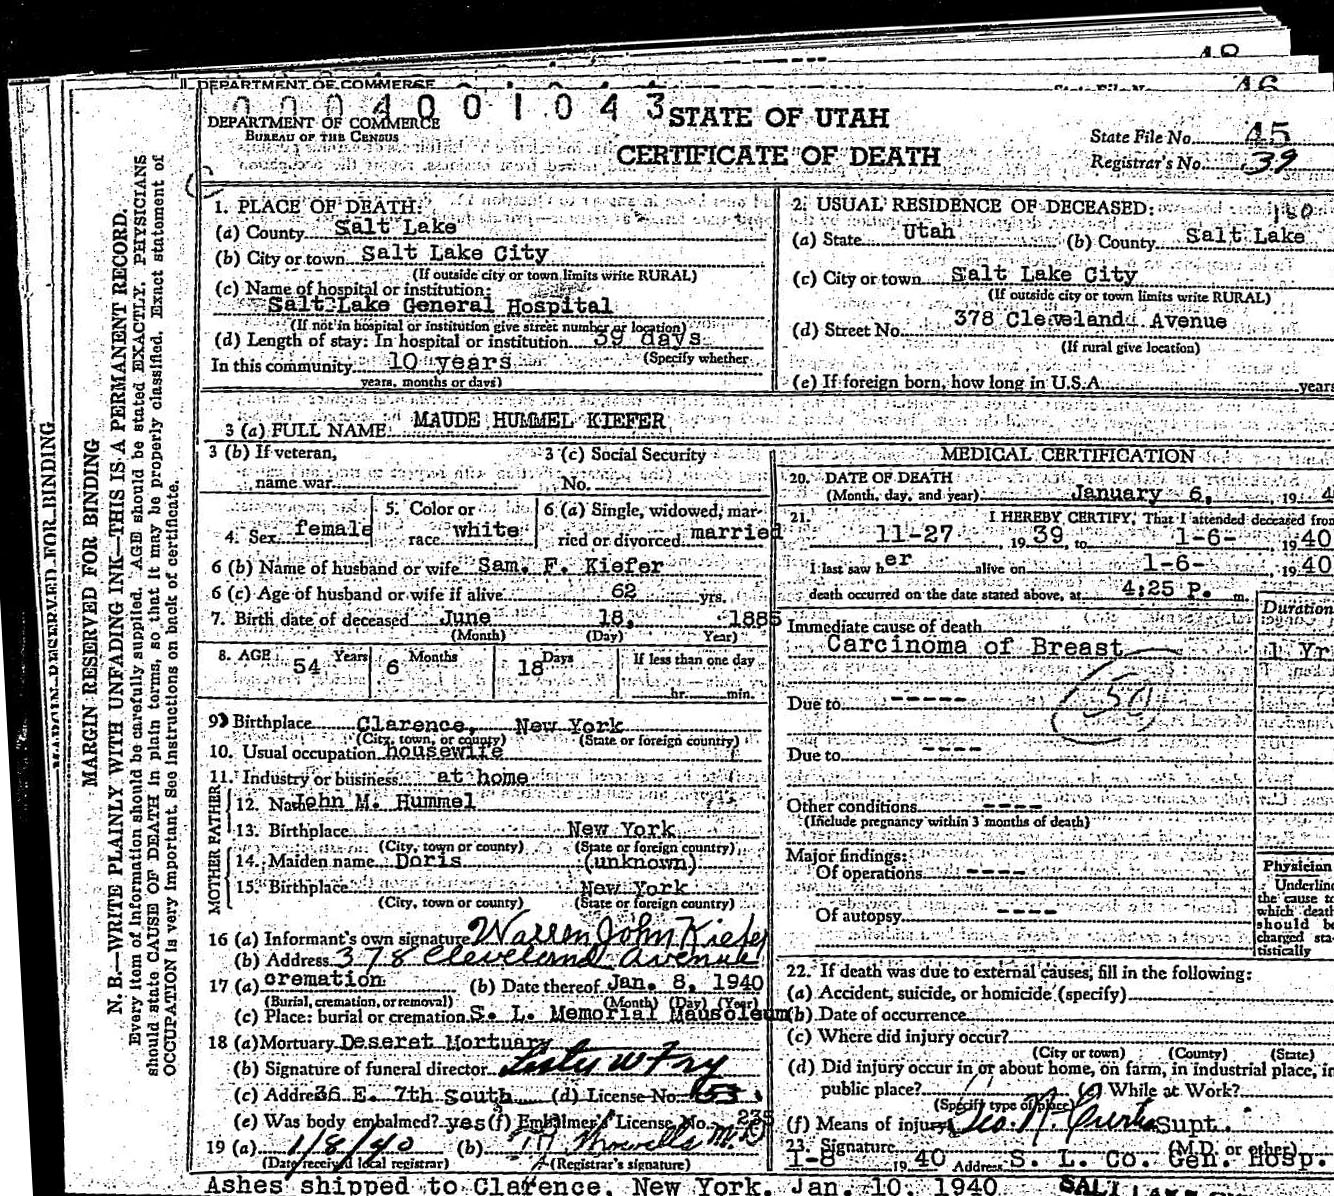 48
46
DEPARTMENT OF COMMERCE
0004001043
DEPARTMENT OF COMMERCE
BUREAU OF THE CENSUS
STATE OF UTAH
CERTIFICATE OF DEATH
State File No. 45
Registrar's No. 39
1. PLACE OF DEATH:
(a) County Salt Lake
(b) City or town Salt Lake City
(If outside city or town limits write RURAL)
(c) Name of hospital or institution:
Salt Lake General Hospital
(If not in hospital or institution give street number or location)
(d) Length of stay: In hospital or institution 39 days
(Specify whether
In this community 10 years
years, months or days)
2. USUAL RESIDENCE OF DECEASED:
(a) State Utah (b) County Salt Lake
(c) City or town Salt Lake City
(If outside city or town limits write RURAL)
(d) Street No. 378 Cleveland Avenue
(If rural give location)
(e) If foreign born, how long in U.S.A. years
3 (a) FULL NAME MAUDE HUMMEL KIEFER
3 (b) If veteran,
name war
3 (c) Social Security
No.
4. Sex female
5. Color or
race white
6 (a) Single, widowed, mar-
ried or divorced married
6 (b) Name of husband or wife Sam. F. Kiefer
6 (c) Age of husband or wife if alive 62 yrs.
7. Birth date of deceased June 18, 1885
(Month) (Day) Year)
8. AGE 54 Years 6 Months 18 Days If less than one day
hr. min.
9 Birthplace Clarence, New York
(City, town, or county) (State or foreign country)
10. Usual occupation housewife
11. Industry or business at home
FATHER
12. Name John M. Hummel
13. Birthplace New York
(City, town or county) (State or foreign country)
MOTHER
14. Maiden name Doris (unknown)
15. Birthplace New York
(City, town or county) (State or foreign country)
16 (a) Informant's own signature Warren John Kiefer
(b) Address 378 Cleveland Avenue
17 (a) cremation (b) Date thereof Jan. 8, 1940
(Burial, cremation, or removal) (Month) (Day) (Year)
(c) Place: burial or cremation S. L. Memorial Mausoleum
18 (a) Mortuary Deseret Mortuary
(b) Signature of funeral director Lester W Fry
(c) Address 36 E. 7th South (d) License No. 53
(e) Was body embalmed? yes (f) Embalmer's License No. 235
19 (a) 1/8/40 (b) M.D.
(Date received local registrar) (Registrar's signature)
Ashes shipped to Clarence, New York, Jan. 10, 1940
MEDICAL CERTIFICATION
20. DATE OF DEATH
(Month, day, and year) January 6, 19 4
21. I HEREBY CERTIFY, That I attended deceased from
11-27 1939 to 1-6- 1940
I last saw her alive on 1-6- 1940
death occurred on the date stated above, at 4:25 P. m.
Immediate cause of death
Duration
Carcinoma of Breast 1 Yr
50
Due to -----
Due to ----
Other conditions ----
(Include pregnancy within 3 months of death)
Major findings:
Of operations ----
Of autopsy ----
Physician
Underline
the cause to
which death
should be
charged sta-
tistically
22. If death was due to external causes, fill in the following:
(a) Accident, suicide, or homicide (specify)
(b) Date of occurrence
(c) Where did injury occur?
(City or town) (County) (State)
(d) Did injury occur in or about home, on farm, in industrial place, in
public place? (e) While at Work?
(Specify type of place)
(f) Means of injury
23. Signature Geo. N. Curtis Supt.
(M.D. or other)
1-8 1940 Address S. L. Co. Gen. Hosp.
SALT LAKE
MARGIN RESERVED FOR BINDING
MARGIN RESERVED FOR BINDING
N. B.—WRITE PLAINLY WITH UNFADING INK—THIS IS A PERMANENT RECORD.
Every item of information should be carefully supplied. AGE should be stated EXACTLY. PHYSICIANS
should state CAUSE OF DEATH in plain terms, so that it may be properly classified. Exact statement of
OCCUPATION is very important. See instructions on back of certificate.